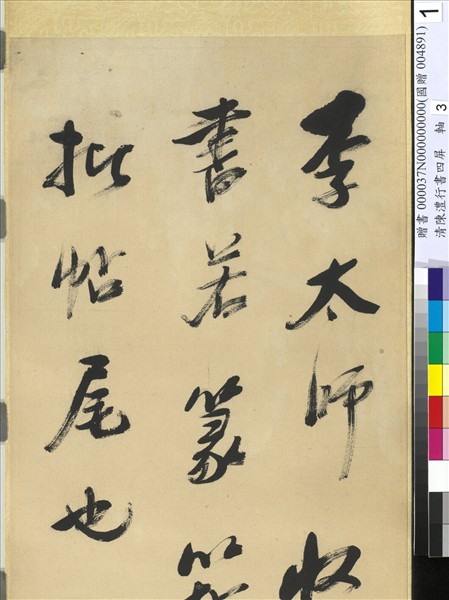 李太師收
書若篆籀
批帖尾也
贈書 000037N000000000(國贈 004891)
清陳澧行書四屏 軸
1
3